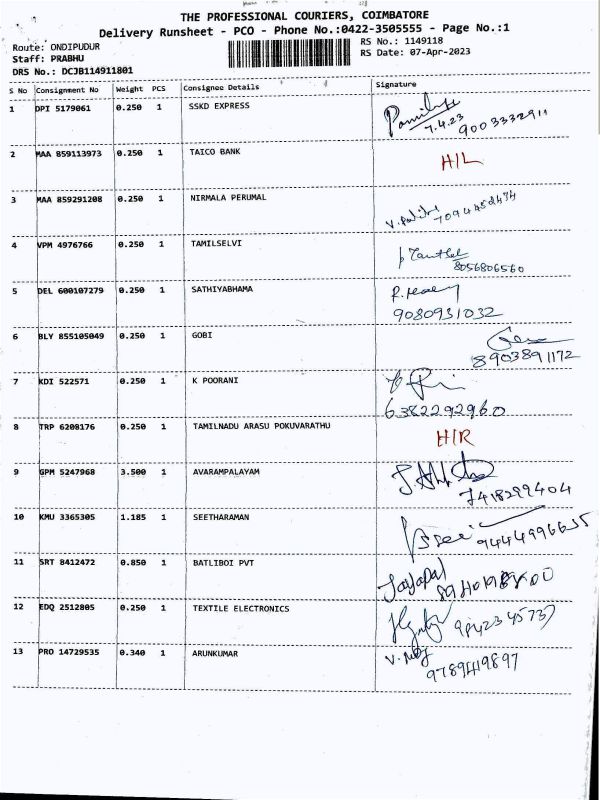 THE PROFESSIONAL COURIERS, COIMBATORE
Delivery Runsheet - PCO - Phone No.:0422-3505555 - Page No.:1
Route: ONDIPUDUR
RS No.: 1149118
Staff: PRABHU
RS Date: 07-Apr-2023
DRS No.: DCJB114911801
S No Consignment No Weight PCS Consignee Details Signature
1 DPI 5179061 0.250 1 SSKD EXPRESS
7.4.23 9003332911
2 MAA 859113973 0.250 1 TAICO BANK H/L
3 MAA 859291208 0.250 1 NIRMALA PERUMAL
4 VPM 4976766 0.250 1 TAMILSELVI
8056806560
5 DEL 600107279 0.250 1 SATHIYABHAMA
9080931032
6 BLY 855105049 0.250 1 GOBI
8903891172
7 KDI 522571 0.250 1 K POORANI
6382292960
8 TRP 6208176 0.250 1 TAMILNADU ARASU POKUVARATHU H/R
9 GPM 5247968 3.500 1 AVARAMPALAYAM
7418299404
10 KMU 3365305 1.185 1 SEETHARAMAN
9444996635
11 SRT 8412472 0.850 1 BATLIBOI PVT
Jayapal
12 EDQ 2512805 0.250 1 TEXTILE ELECTRONICS
9842345737
13 PRO 14729535 0.340 1 ARUNKUMAR